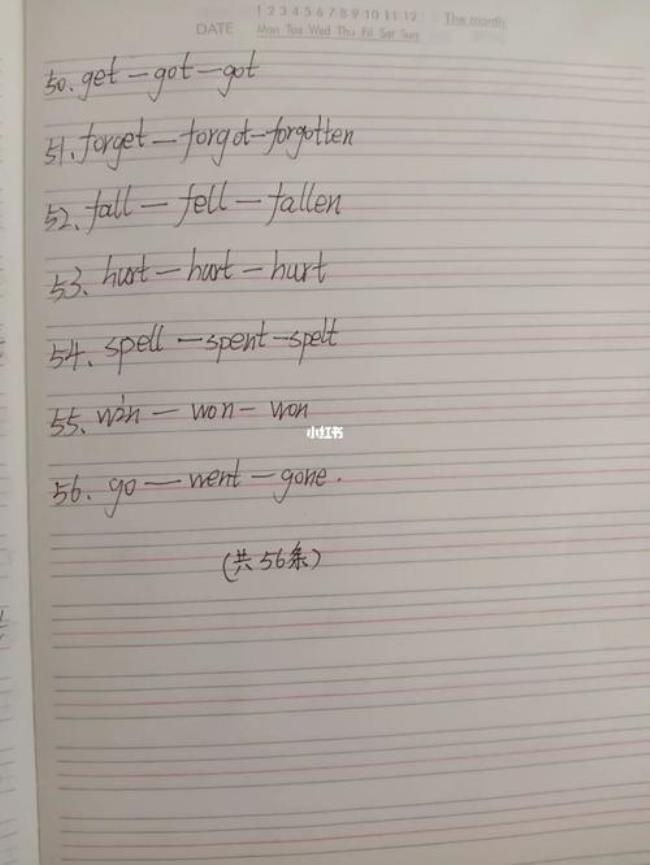 1 2 3 4 5 6 7 8 9 10 11 12 The month
DATE Mon Tue Wed Thu Fri Sat Sun
50. get — got — got
51. forget — forgot — forgotten
52. fall — fell — fallen
53. hurt — hurt — hurt
54. spell — spent — spelt
55. win — won — won
小红书
56. go — went — gone.
(共56条)